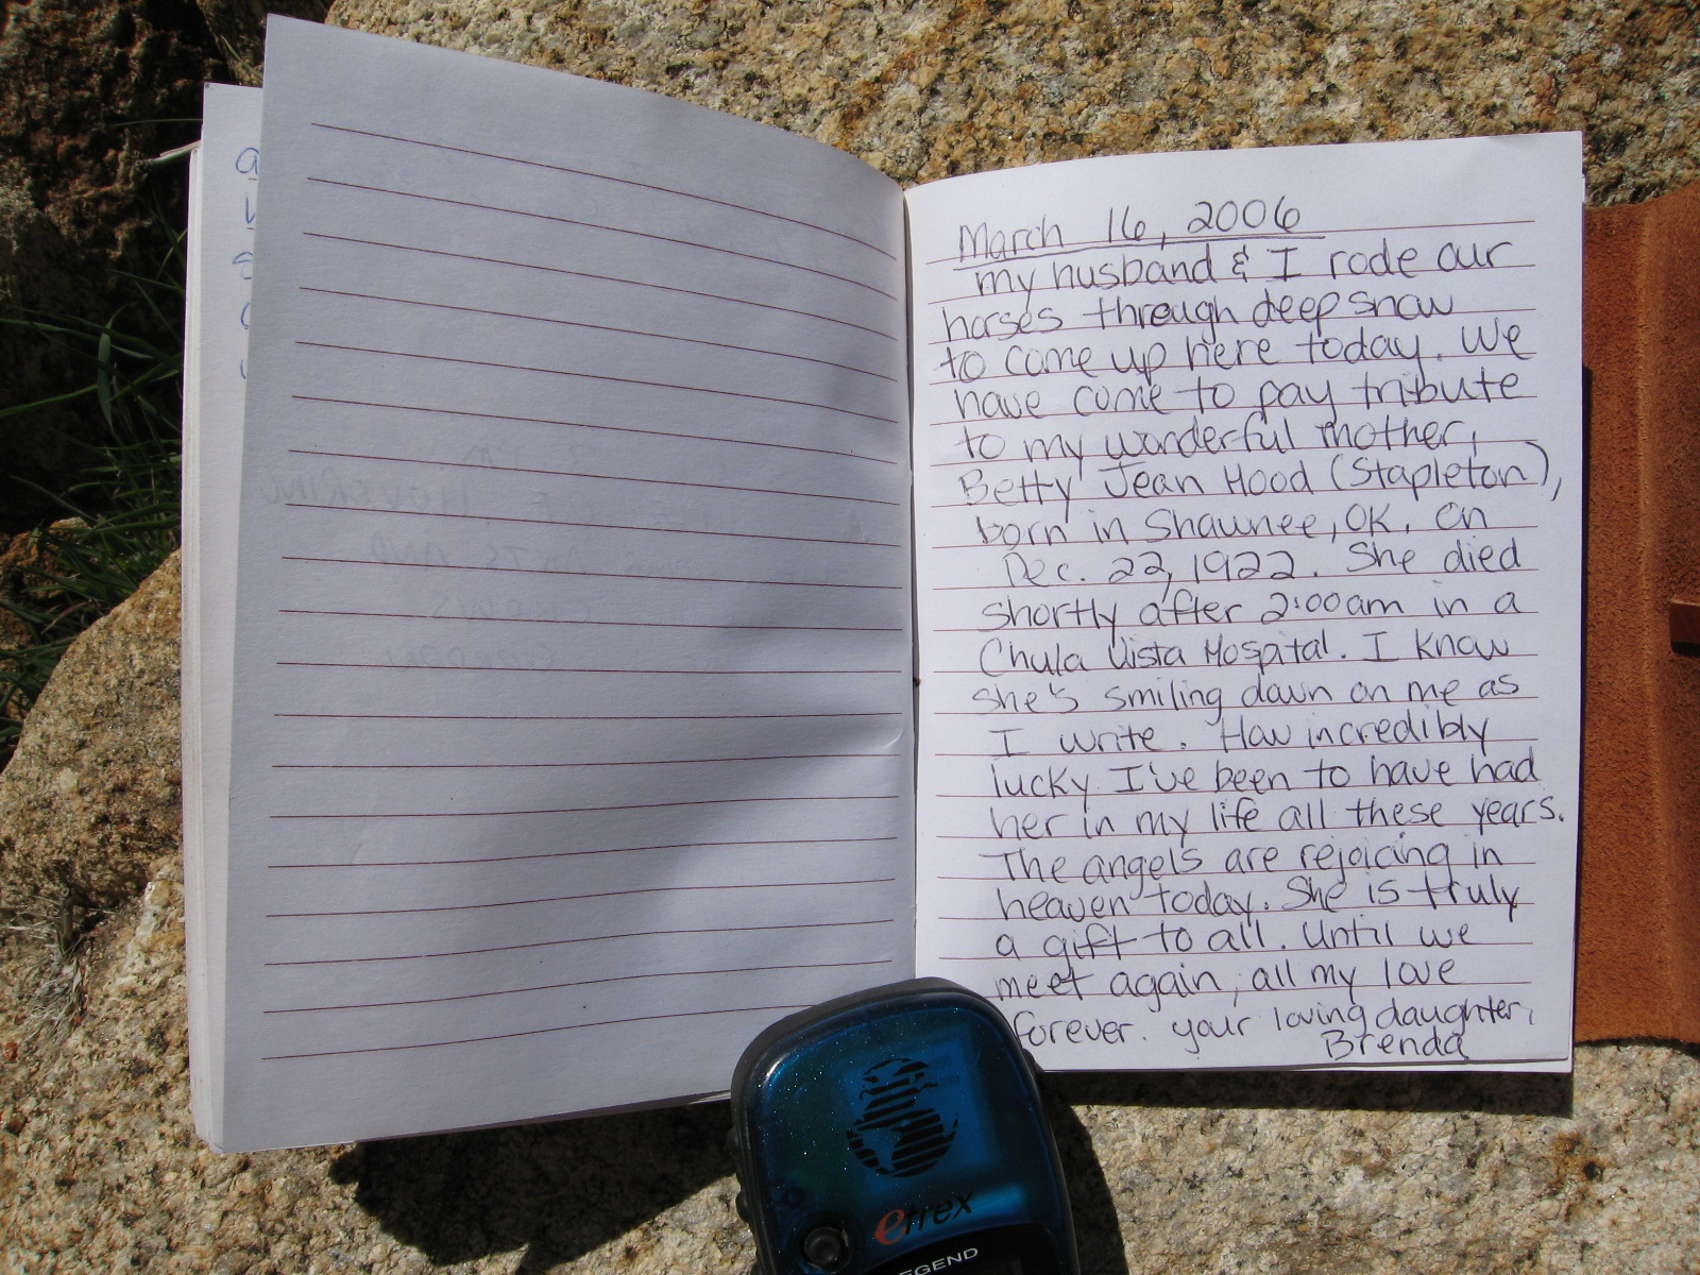 March 16, 2006
my husband & I rode our
horses through deep snow
to come up here today. We
have come to pay tribute
to my wonderful mother,
Betty Jean Hood (Stapleton),
born in Shawnee, OK. on
Dec. 22, 1922. She died
shortly after 2:00am in a
Chula Vista Hospital. I know
she's smiling down on me as
I write. How incredibly
lucky I've been to have had
her in my life all these years.
The angels are rejoicing in
heaven today. She is truly
a gift to all. Until we
meet again, all my love
forever. your loving daughter,
Brenda
etrex
LEGEND